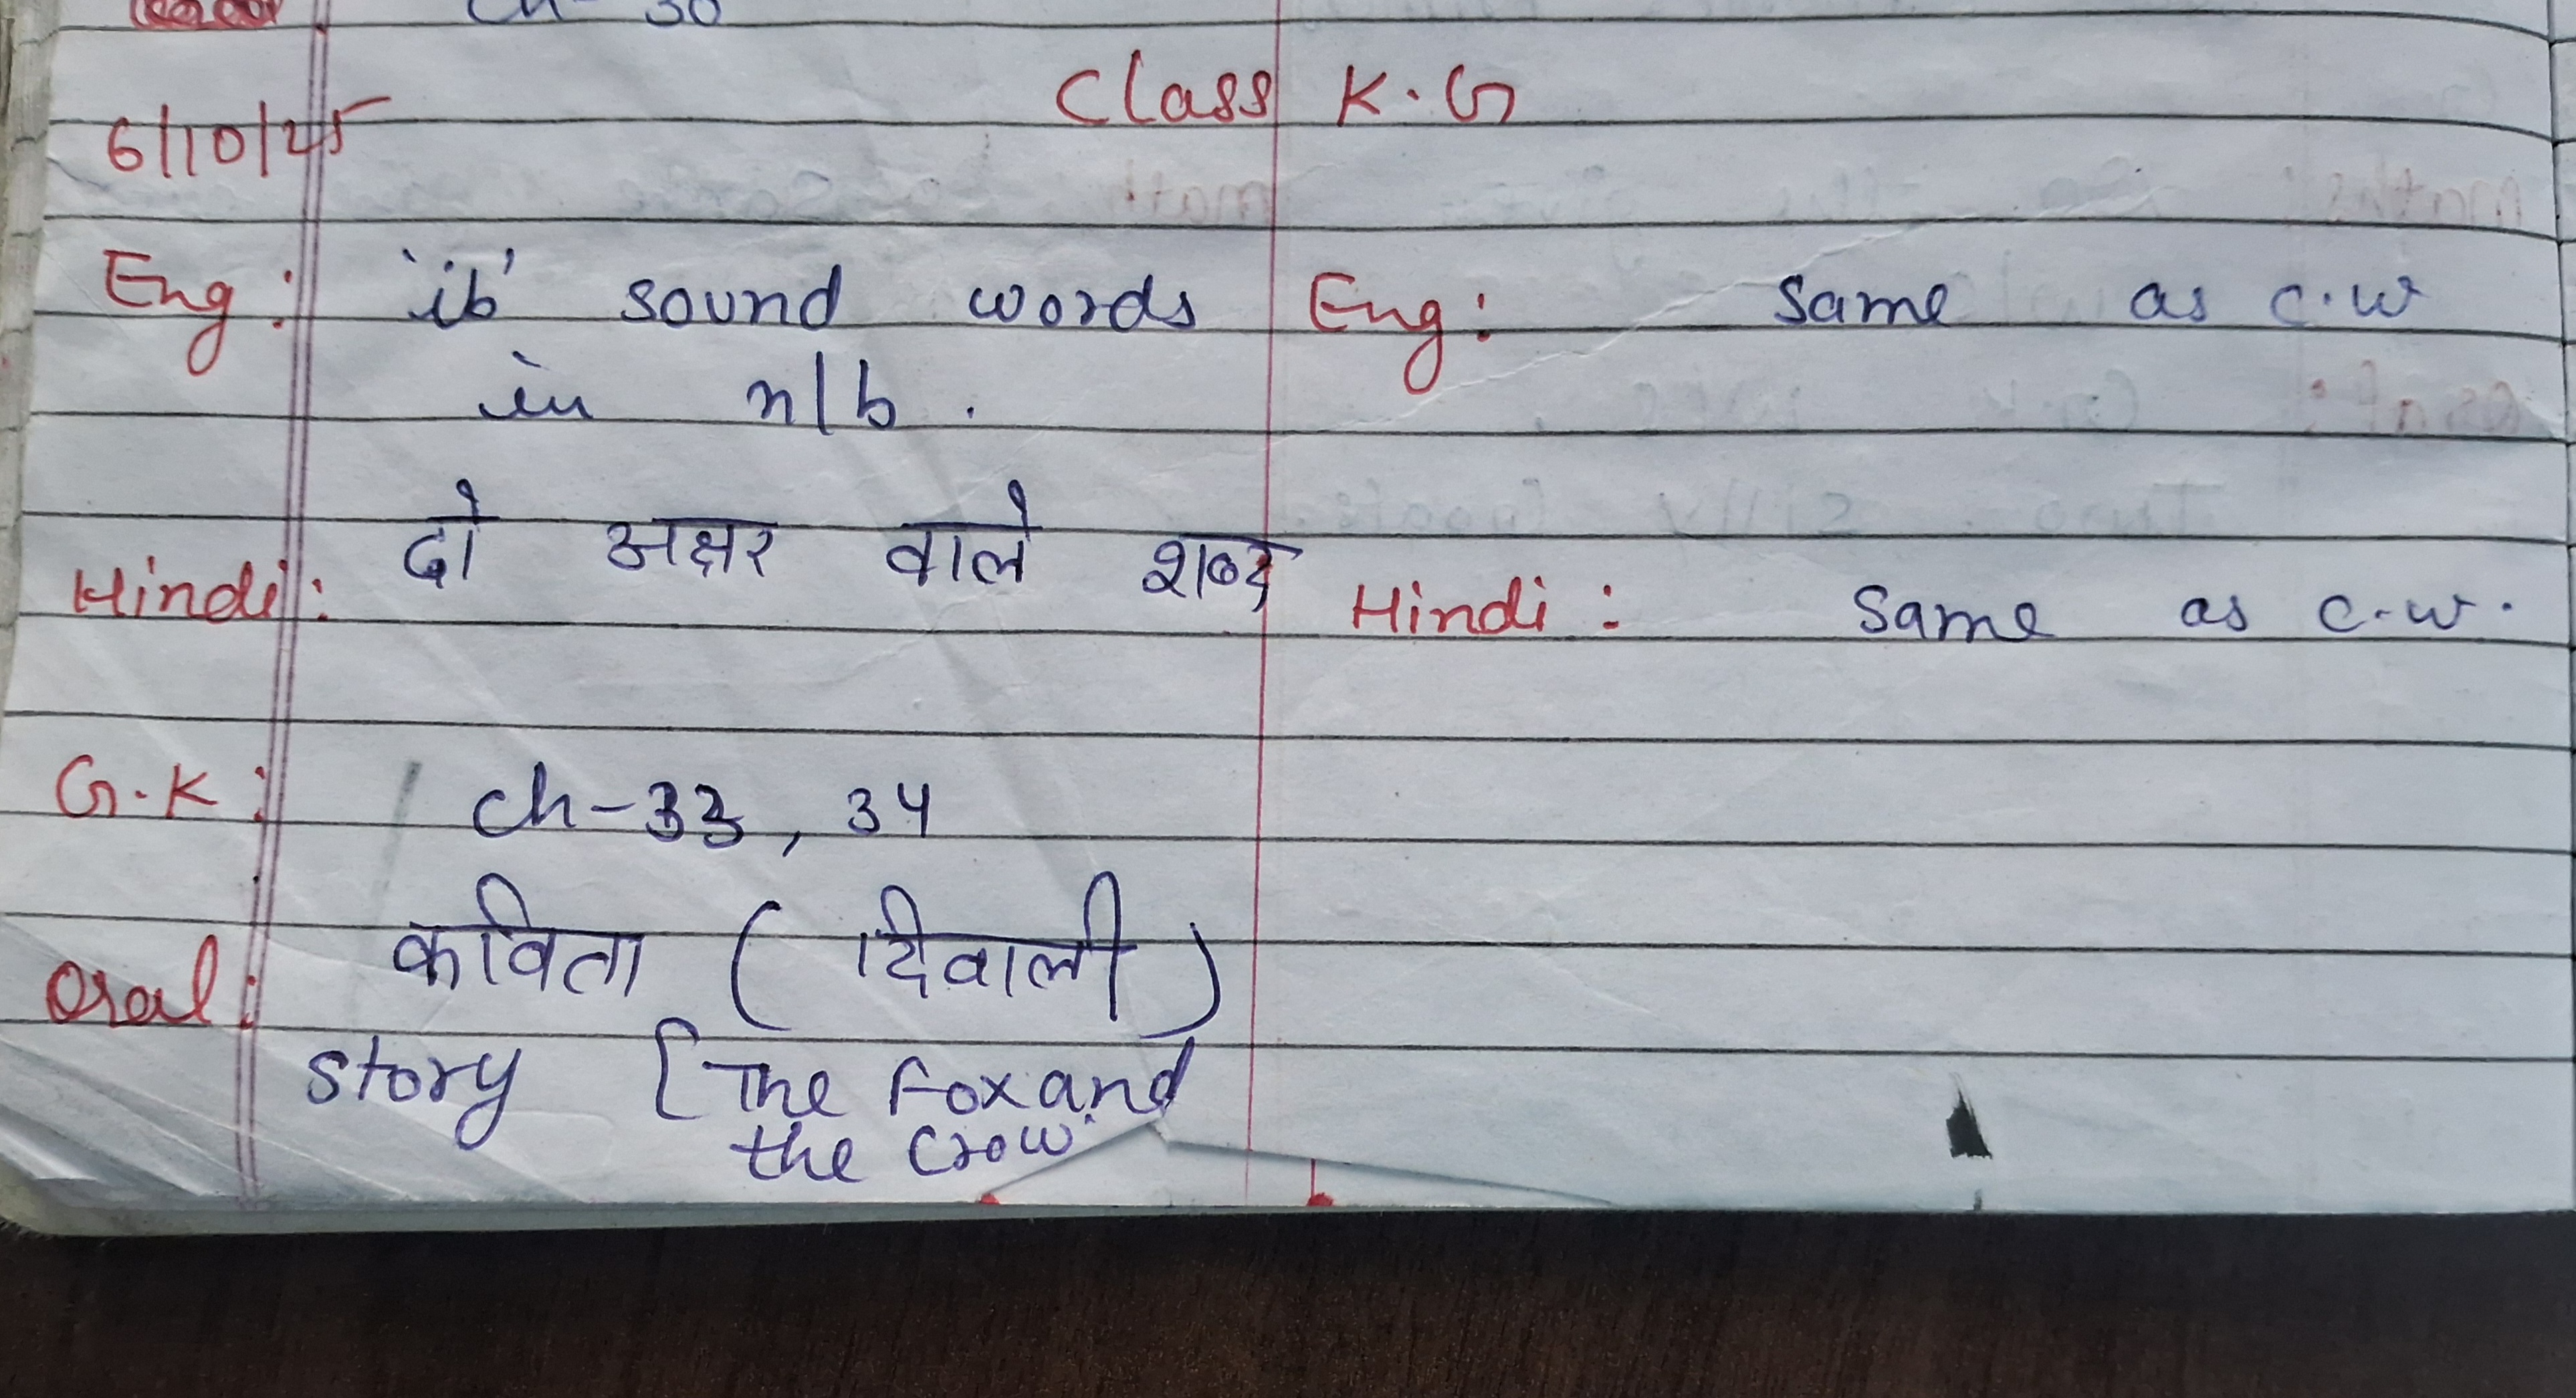 ch - 30
Class K.G
6/10/25
Eng: 'ib' sound words Eng: Same as c.w
in n/b.
Hindi: दो अक्षर वाले शब्द Hindi: Same as c.w.
G.K: ch-33, 34
Oral: कविता (दिवाली)
story [The Fox and
the Crow